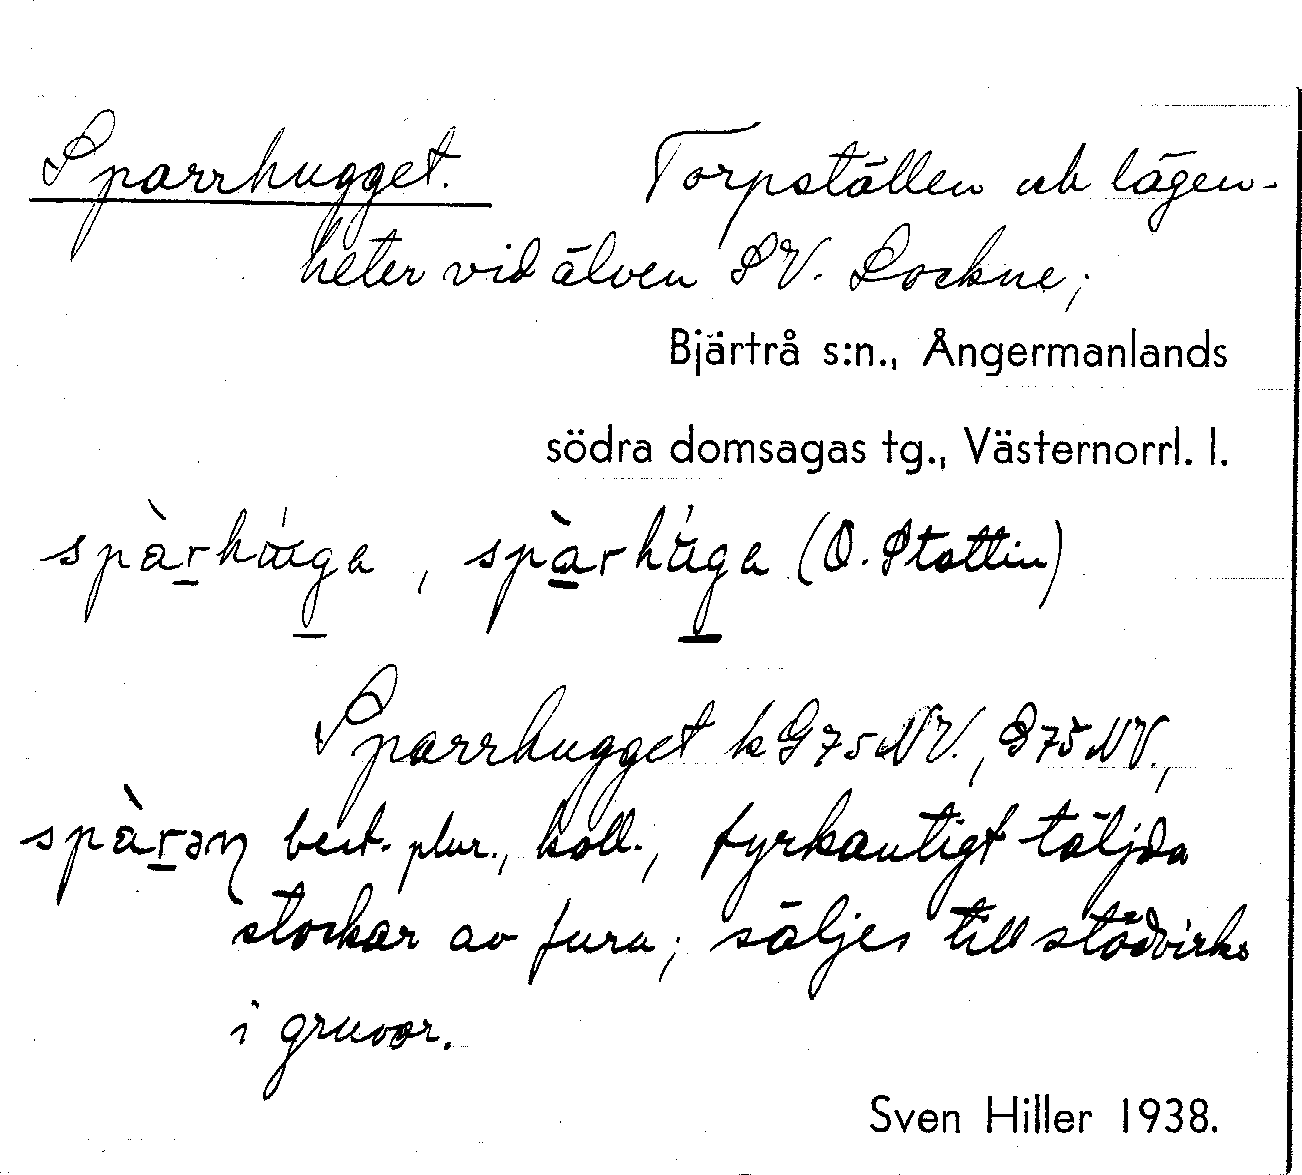 Sparrhugget. Torpställen och lägen-
heter vid älven SV. Lockne;
Bjärtrå s:n., Ångermanlands
södra domsagas tg., Västernorrl. l.
spàrhúga, spàrhúga (O. Stattin)
Sparrhugget k G75NV., G75NV.,
spàrən best. plur., koll., fyrkantigt täljda
stockar av fura; säljes till stödvirke
i gruvor.
Sven Hiller 1938.